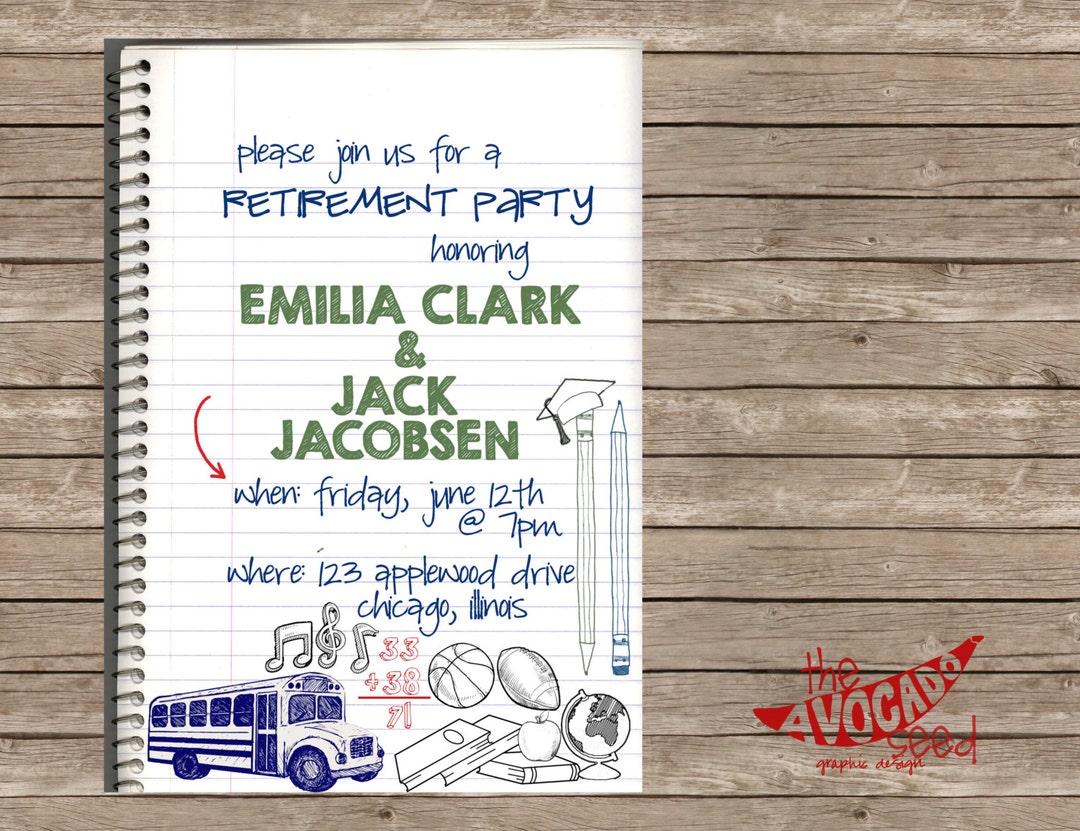 please join us for a
RETIREMENT PARTY
honoring
EMILIA CLARK
&
JACK
JACOBSEN
when: friday, june 12th
@ 7pm
where: 123 applewood drive
chicago, illinois
33
+38
71
the
AVOCADO
seed
graphic design